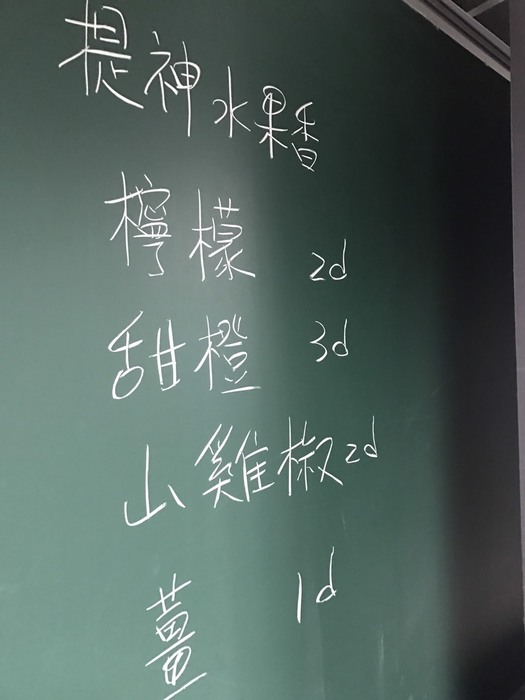 提神水果香
檸檬 2d
甜橙 3d
山雞椒 2d
薑 1d